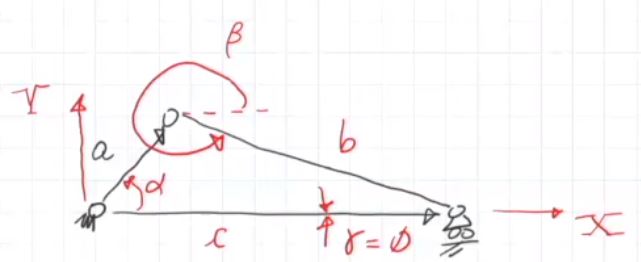 β
Y
a
b
α
c
γ = 0
X